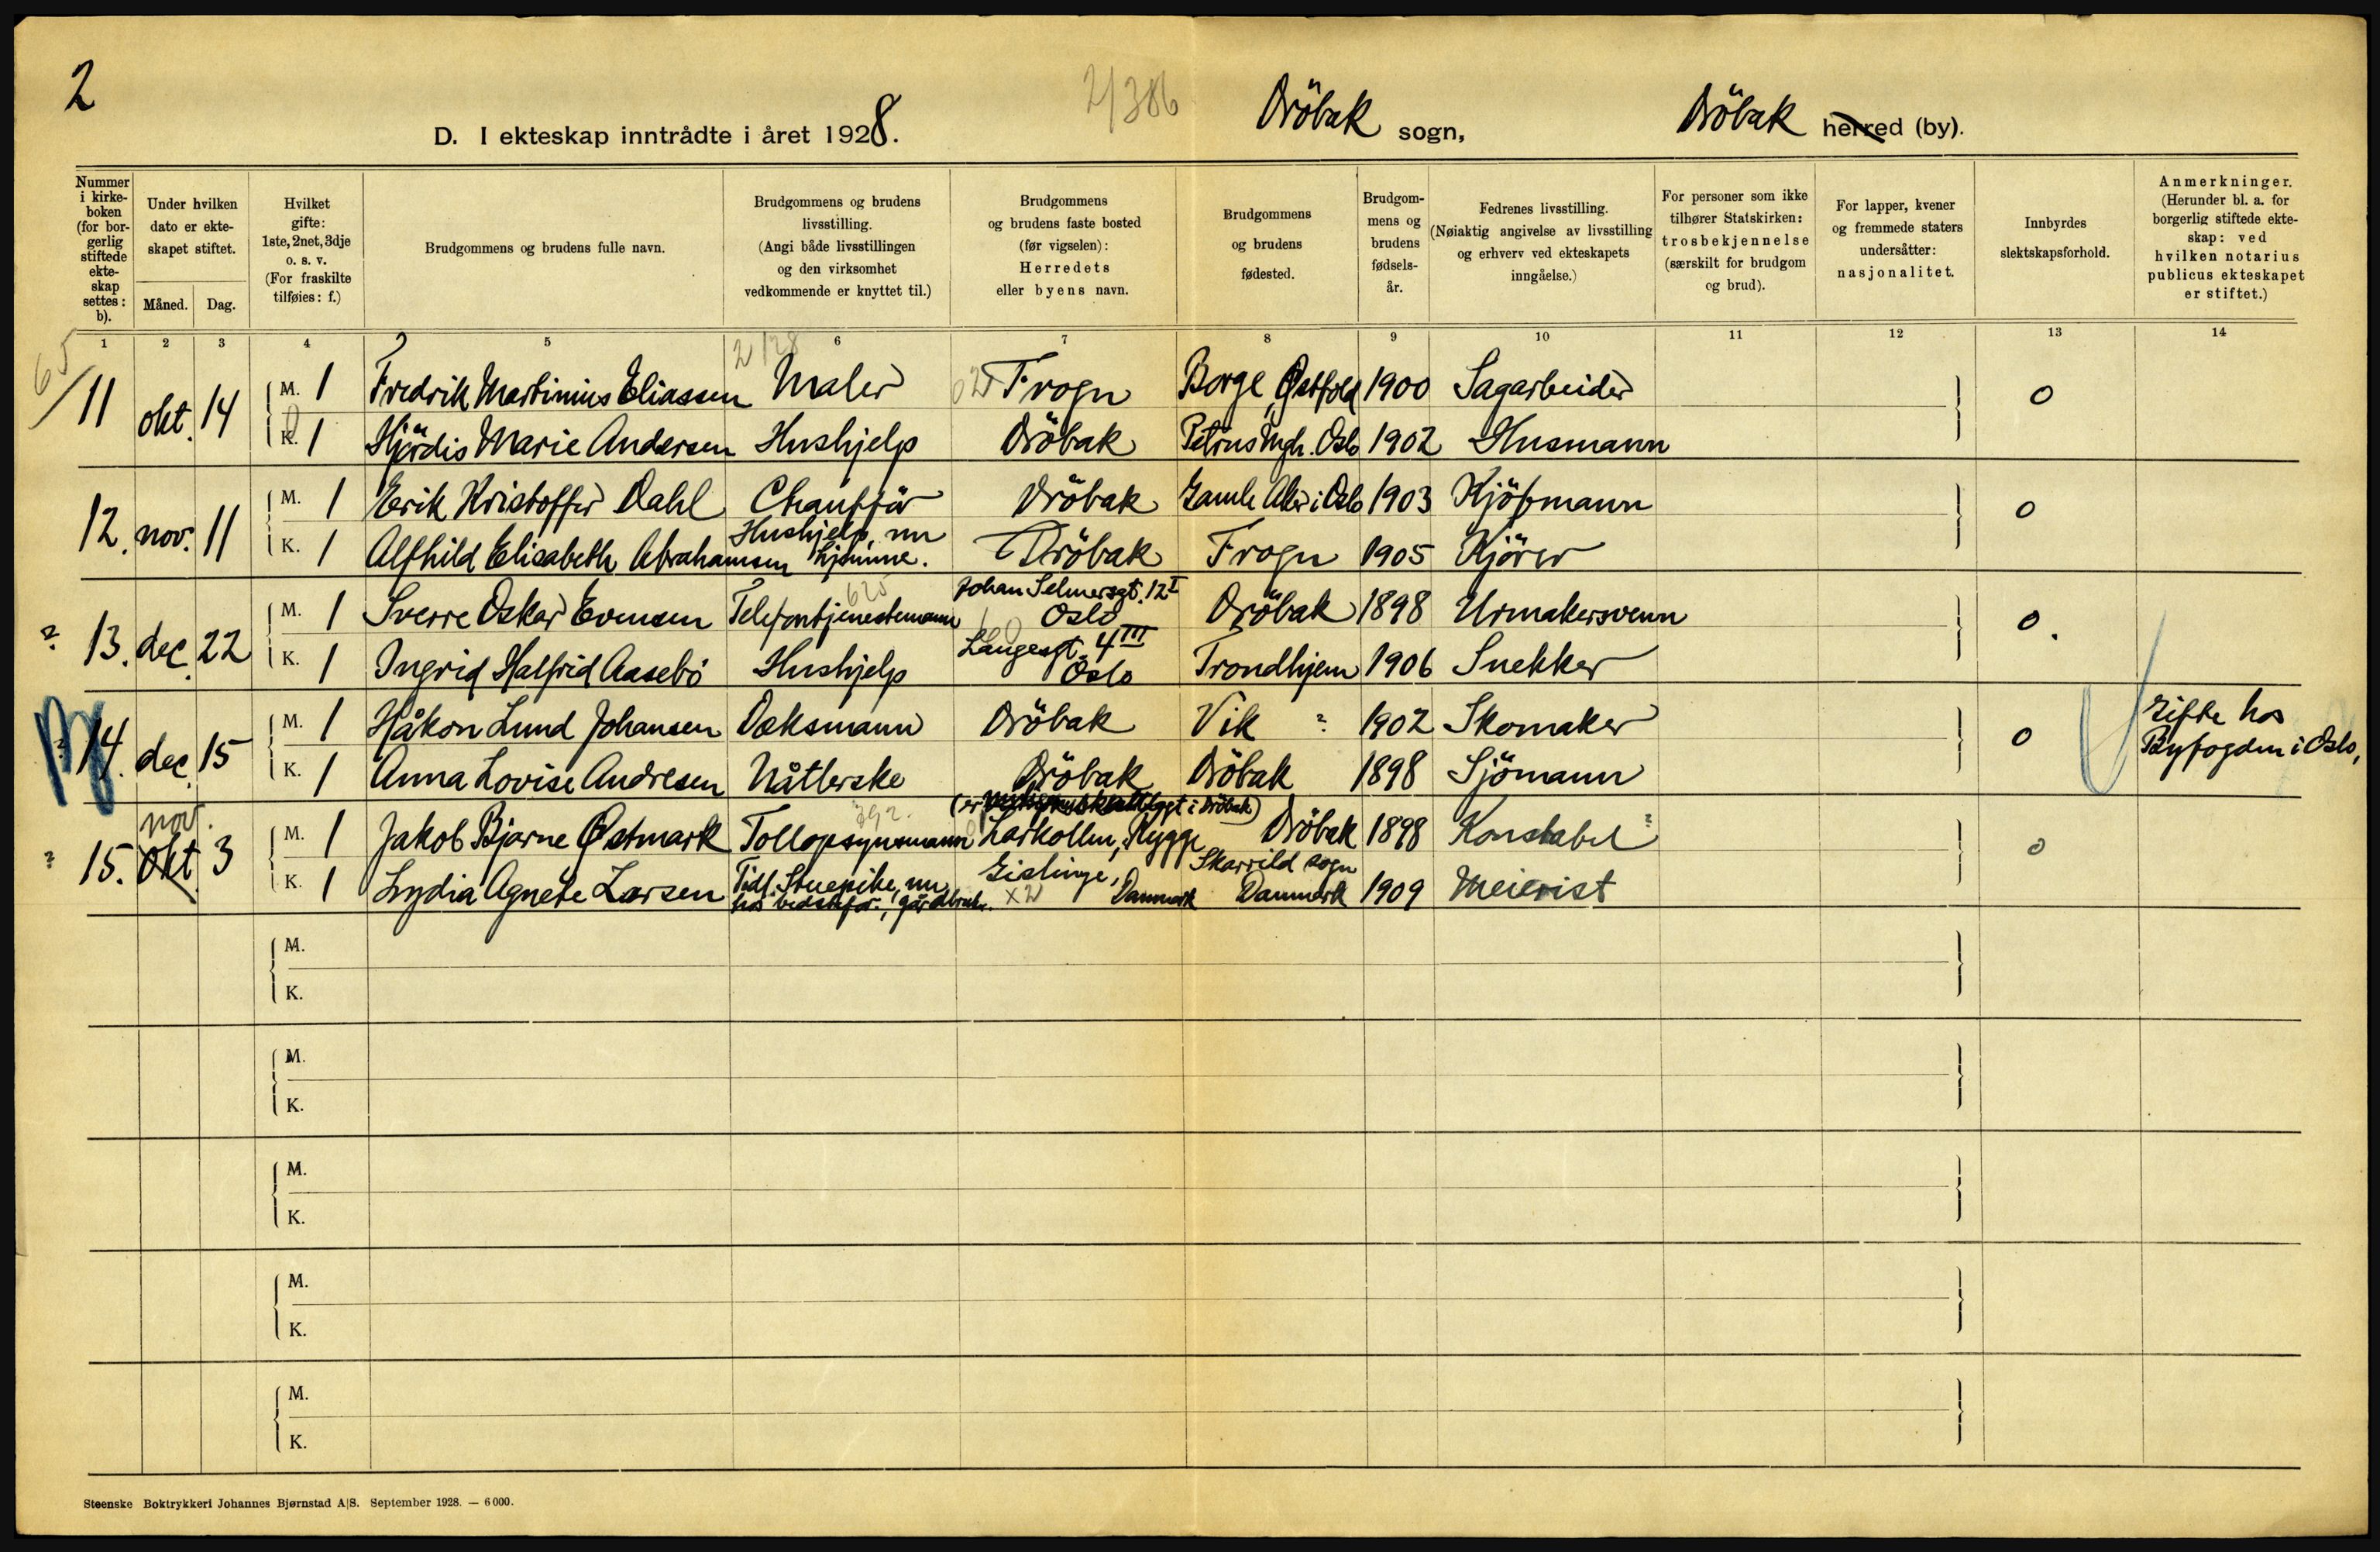 2
2/386
D. I ekteskap inntrådte i året 1928. Dröbak sogn, Dröbak herred (by).
Nummer i kirkeboken (for borgerlig stiftede ekteskap settes: b).
Under hvilken dato er ekteskapet stiftet.
Måned. Dag.
Hvilket gifte: 1ste, 2net, 3dje o. s. v. (For fraskilte tilføies: f.)
Brudgommens og brudens fulle navn.
Brudgommens og brudens livsstilling. (Angi både livsstillingen og den virksomhet vedkommende er knyttet til.)
Brudgommens og brudens faste bosted (før vigselen): Herredets eller byens navn.
Brudgommens og brudens fødested.
Brudgommens og brudens fødselsår.
Fedrenes livsstilling. (Nøiaktig angivelse av livsstilling og erhverv ved ekteskapets inngåelse.)
For personer som ikke tilhører Statskirken: trosbekjennelse (særskilt for brudgom og brud).
For lapper, kvener og fremmede staters undersåtter: nasjonalitet.
Innbyrdes slektskapsforhold.
Anmerkninger. (Herunder bl. a. for borgerlig stiftede ekteskap: ved hvilken notarius publicus ekteskapet er stiftet.)
1 2 3 4 5 6 7 8 9 10 11 12 13 14
65
11 okt. 14 M. 1 Fredrik Martinius Eliassen Maler Frogn Borge, Østfold 1900 Sagarbeider 0
K. 1 Hjördis Marie Andersen Hushjelp Dröbak Petrus mgh. Oslo 1902 Husmann
12. nov. 11 M. 1 Erik Kristoffer Dahl Chaufför Dröbak Gamle Aker i Oslo 1903 Kjöpmann 0
K. 1 Alfhild Elisabeth Abrahamsen Hushjelp, nu hjemme. Dröbak Frogn 1905 Kjörer
? 13. dec. 22 M. 1 Sverre Oskar Evensen Telefontjenestemann Johan Selmersgt. 12 I Oslo Dröbak 1898 Urmakersvenn 0.
K. 1 Ingrid Halfrid Aasebö Hushjelp Langesgt. 4 III Oslo Trondhjem 1906 Snekker
14. dec. 15 M. 1 Håkon Lund Johansen Dæksmann Dröbak Vik ? 1902 Skomaker 0 Gifte hos Byfogden i Oslo,
K. 1 Anna Lovise Andresen Nåtlerske Dröbak Dröbak 1898 Sjömann
? 15. okt. nov. 3 M. 1 Jakob Bjarne Østmark Tollopsynsmann (er i Dröbak) Larkollen, Rygge Dröbak 1898 Konstabel ? 0
K. 1 Lydia Agnete Larsen Tidl. Stuepike, nu hos bedstefar, gårdbruker. Gislinge, Danmark Skarrild sogn Danmark 1909 Meierist
M.
K.
M.
K.
M.
K.
M.
K.
M.
K.
Steenske Boktrykkeri Johannes Bjørnstad A|S. September 1928. — 6000.